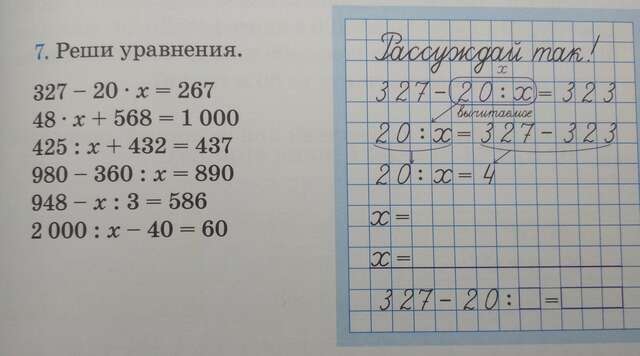 7. Реши уравнения.
327 – 20 · x = 267
48 · x + 568 = 1 000
425 : x + 432 = 437
980 – 360 : x = 890
948 – x : 3 = 586
2 000 : x – 40 = 60
Рассуждай так!
x
327 – 20 : x = 323
вычитаемое
20 : x = 327 – 323
20 : x = 4
x =
x =
327 – 20 : =